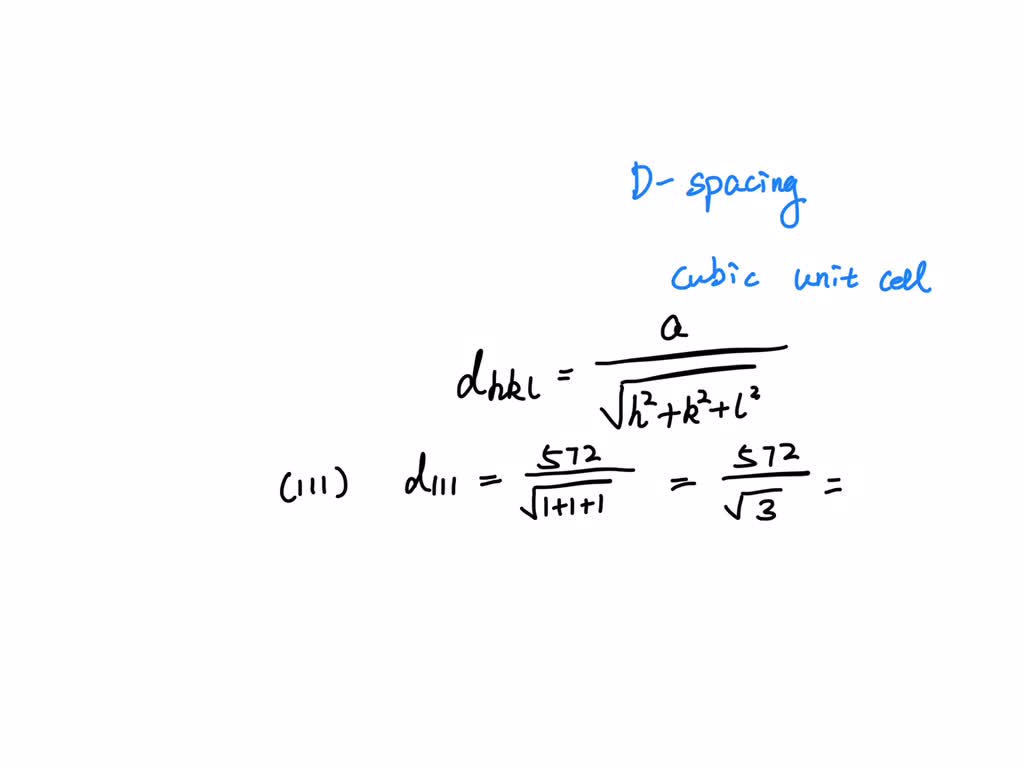 D- spacing
cubic unit cell
d_{hkl} = \frac{a}{\sqrt{h^2+k^2+l^2}}
(111) d_{111} = \frac{572}{\sqrt{1+1+1}} = \frac{572}{\sqrt{3}} =